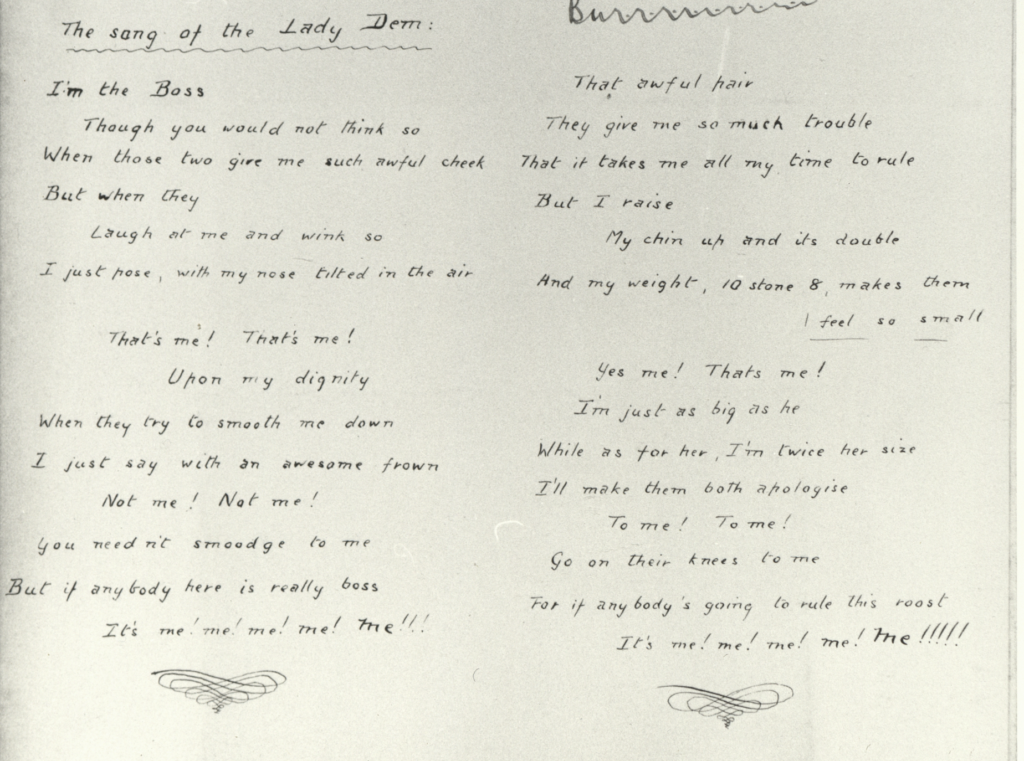 The song of the Lady Dem:
I'm the Boss
Though you would not think so
When those two give me such awful cheek
But when they
Laugh at me and wink so
I just pose, with my nose tilted in the air
That's me! That's me!
Upon my dignity
When they try to smooth me down
I just say with an awesome frown
Not me! Not me!
You need n't smoodge to me
But if anybody here is really boss
It's me! me! me! me! me!!!
Burrrrrrrrr
That awful hair
They give me so much trouble
That it takes me all my time to rule
But I raise
My chin up and its double
And my weight, 10 stone 8, makes them
feel so small
Yes me! Thats me!
I'm just as big as he
While as for her, I'm twice her size
I'll make them both apologise
To me! To me!
Go on their knees to me
For if anybody's going to rule this roost
It's me! me! me! me! me!!!!!